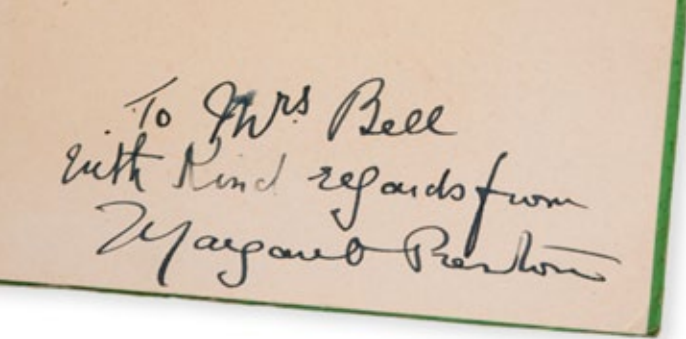 To Mrs Bell
with Kind regards from
Margaret Preston